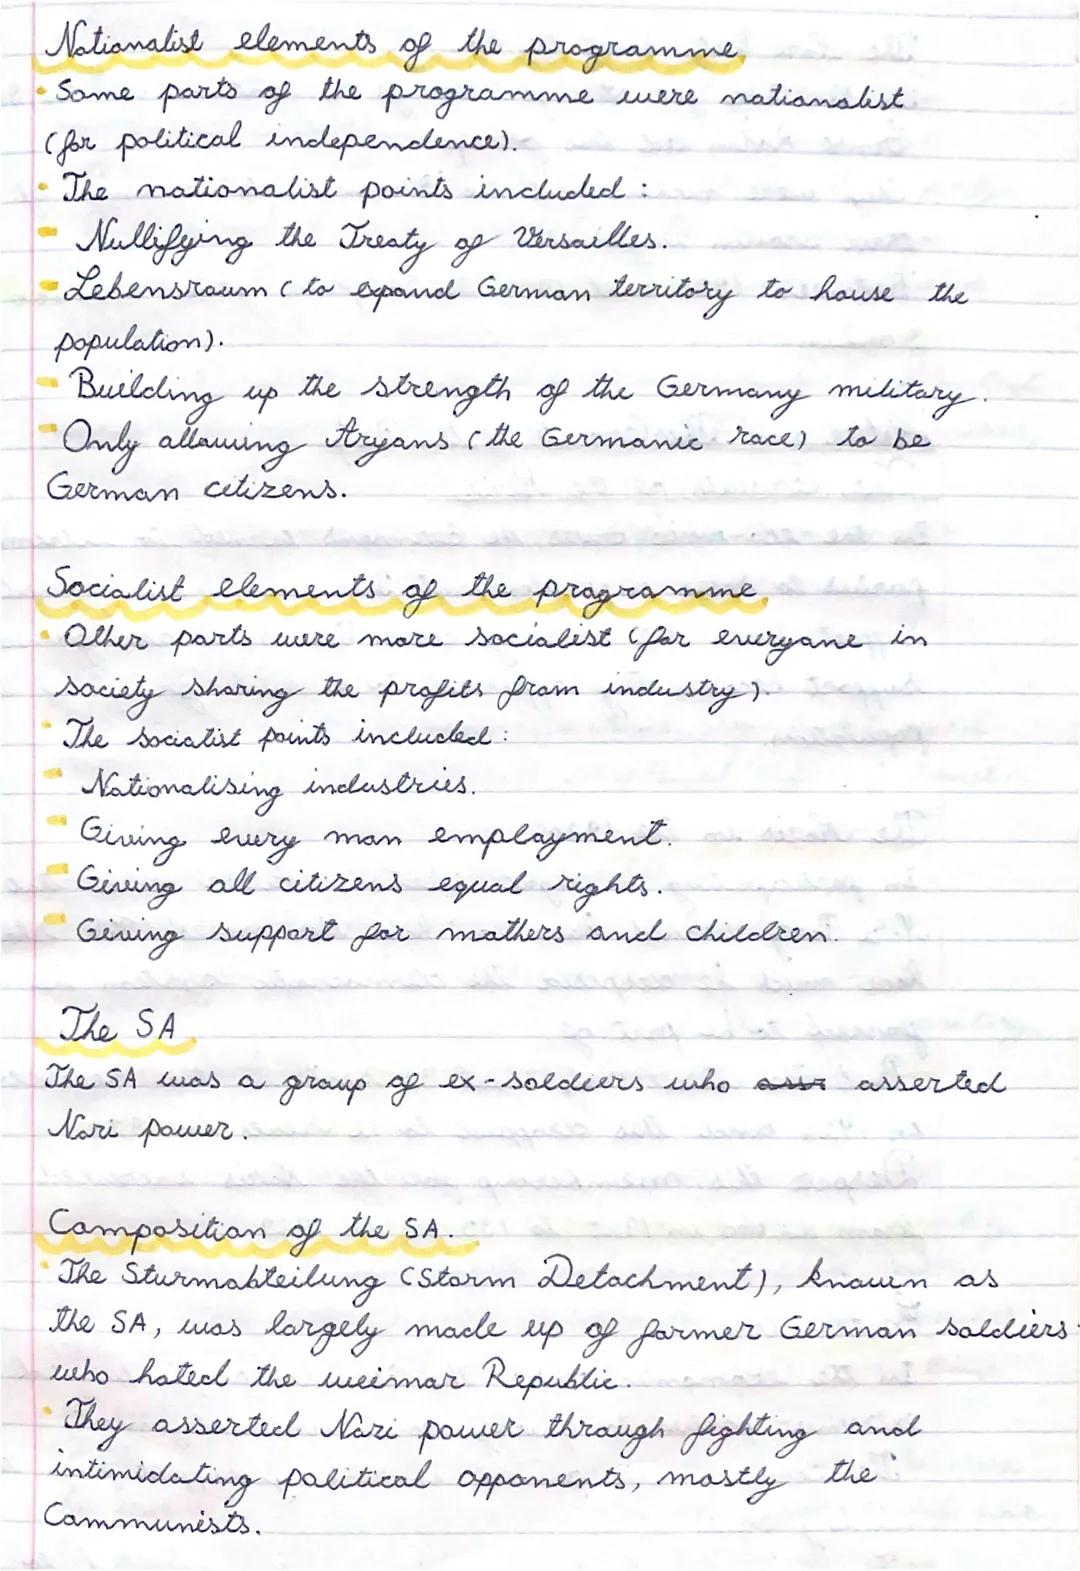 Nationalist elements of the programme.
• Some parts of the programme were nationalist
(for political independence).
• The nationalist points included:
- Nullifying the Treaty of Versailles.
- Lebensraum (to expand German territory to house the
population).
- Building up the strength of the Germany military.
- Only allowing Aryans (the Germanic race) to be
German citizens.
Socialist elements of the programme.
• Other parts were more socialist (for everyone in
society sharing the profits from industry).
• The socialist points included:
- Nationalising industries.
- Giving every man employment.
- Giving all citizens equal rights.
- Giving support for mothers and children.
The SA
The SA was a group of ex-soldiers who asserted
Nazi power.
Composition of the SA.
• The Sturmabteilung (Storm Detachment), known as
the SA, was largely made up of former German soldiers
who hated the weimar Republic.
• They asserted Nazi power through fighting and
intimidating political opponents, mostly the
Communists.